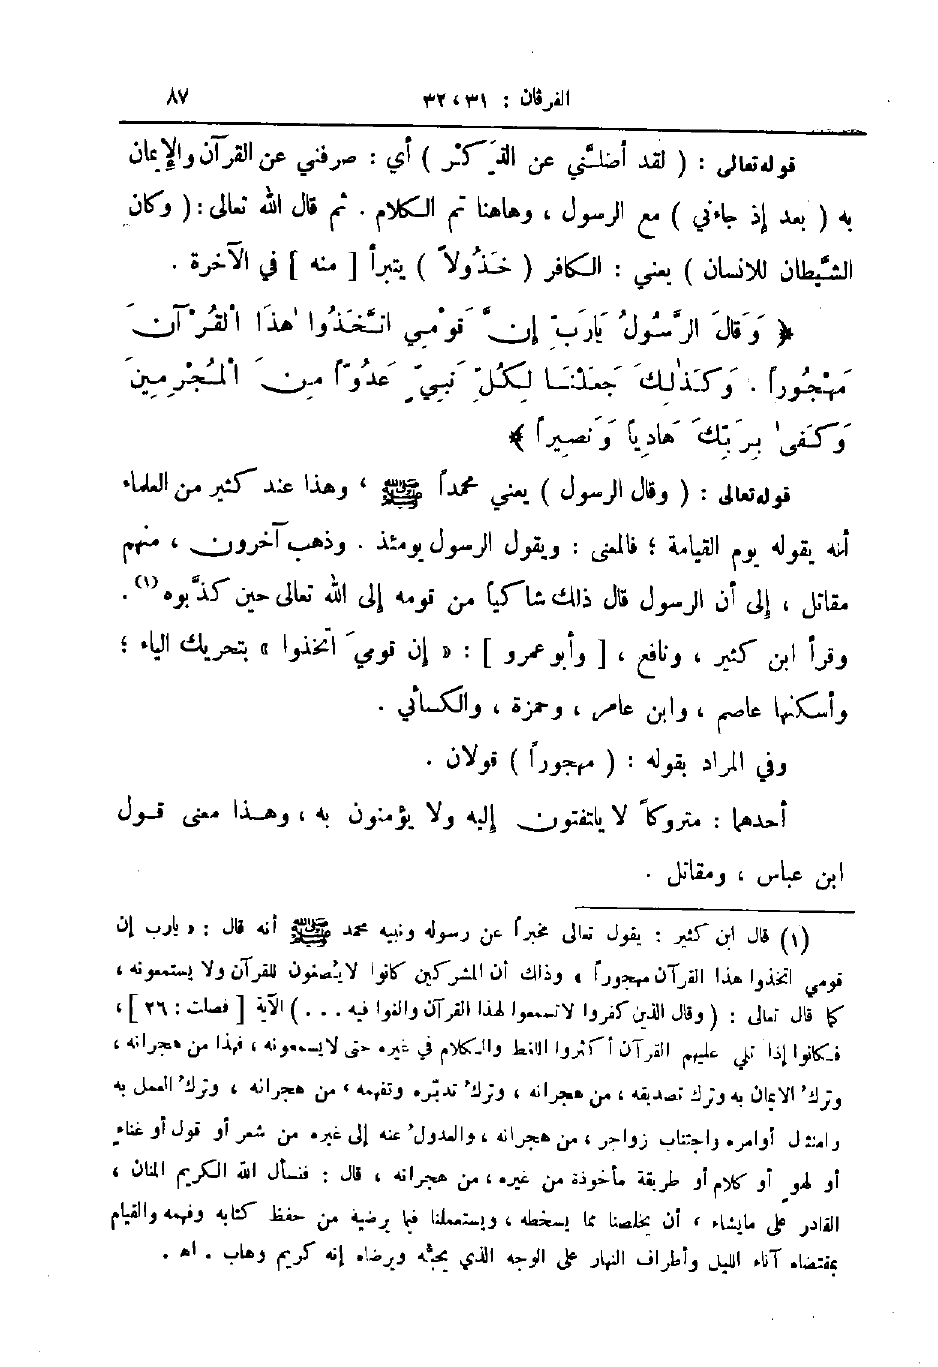 الفرقان : ٣١ ، ٣٢ ٨٧
قوله تعالى : ( لقد أضلَّني عن الذِّكْر ) أي : صرفني عن القرآن والإيمان
به ( بعد إذ جاءني ) مع الرسول ، وهاهنا تم الكلام . ثم قال الله تعالى : ( وكان
الشيَّطان للانسان ) يعني : الكافر ( خَذُولاً ) يتبرأ [ منه ] في الآخرة .
﴿ وَقَالَ الرَّسُولُ يَارَبِّ إِنَّ قَوْمِي اتَّخَذُوا هٰذَا الْقُرْآنَ
مَهْجُوراً . وَكَذٰلِكَ جَعَلْنَا لِكُلِّ نَبِيٍّ عَدُوّاً مِنَ الْمُجْرِمِينَ
وَكَفىٰ بِرَبِّكَ هَادِياً وَنَصِيراً ﴾
قوله تعالى : ( وقال الرسول ) يعني محمداً ﷺ ، وهذا عند كثير من العلماء
أنه يقوله يوم القيامة ؛ فالمعنى : ويقول الرسول يومئذ . وذهب آخرون ، منهم
مقاتل ، إلى أن الرسول قال ذلك شاكياً من قومه إلى الله تعالى حين كذَّبوه (١) .
وقرأ ابن كثير ، ونافع ، [ وأبو عمرو ] : « إن قوميَ اتخذوا » بتحريك الياء ؛
وأسكنها عاصم ، وابن عامر ، وحمزة ، والكسائي .
وفي المراد بقوله : ( مهجوراً ) قولان .
أحدهما : متروكاً لا يلتفتون إليه ولا يؤمنون به ، وهذا معنى قول
ابن عباس ، ومقاتل .
(١) قال ابن كثير : يقول تعالى مخبراً عن رسوله ونبيه محمد ﷺ أنه قال : « يارب إن
قومي اتخذوا هذا القرآن مهجوراً » وذلك أن المشركين كانوا لا يُصغون للقرآن ولا يستمعونه ،
كما قال تعالى : ( وقال الذين كفروا لاتسمعوا لهذا القرآن والغوا فيه . . . ) الآية [ فصلت : ٢٦ ] ،
فكانوا إذا تلي عليهم القرآن أكثروا اللغط والكلام في غيره حتى لايسمعونه ، فهذا من هجرانه ،
وتركُ الايمان به وترك تصديقه ، من هجرانه ، وتركُ تدبّره وتفهمه ، من هجرانه ، وتركُ العمل به
وامتثال أوامره واجتناب زواجره ، من هجرانه ، والعدولُ عنه إلى غيره من شعر أو قول أو غناءٍ
أو لهوٍ أو كلام أو طريقة مأخوذة من غيره ، من هجرانه ، قال : فنسأل الله الكريم المنان ،
القادر على مايشاء ، أن يخلصنا مما يسخطه ، ويستعملنا فيما يرضيه من حفظ كتابه وفهمه والقيام
بمقتضاه آناء الليل وأطراف النهار على الوجه الذي يحبُّه ويرضاه إنه كريم وهاب . اه .